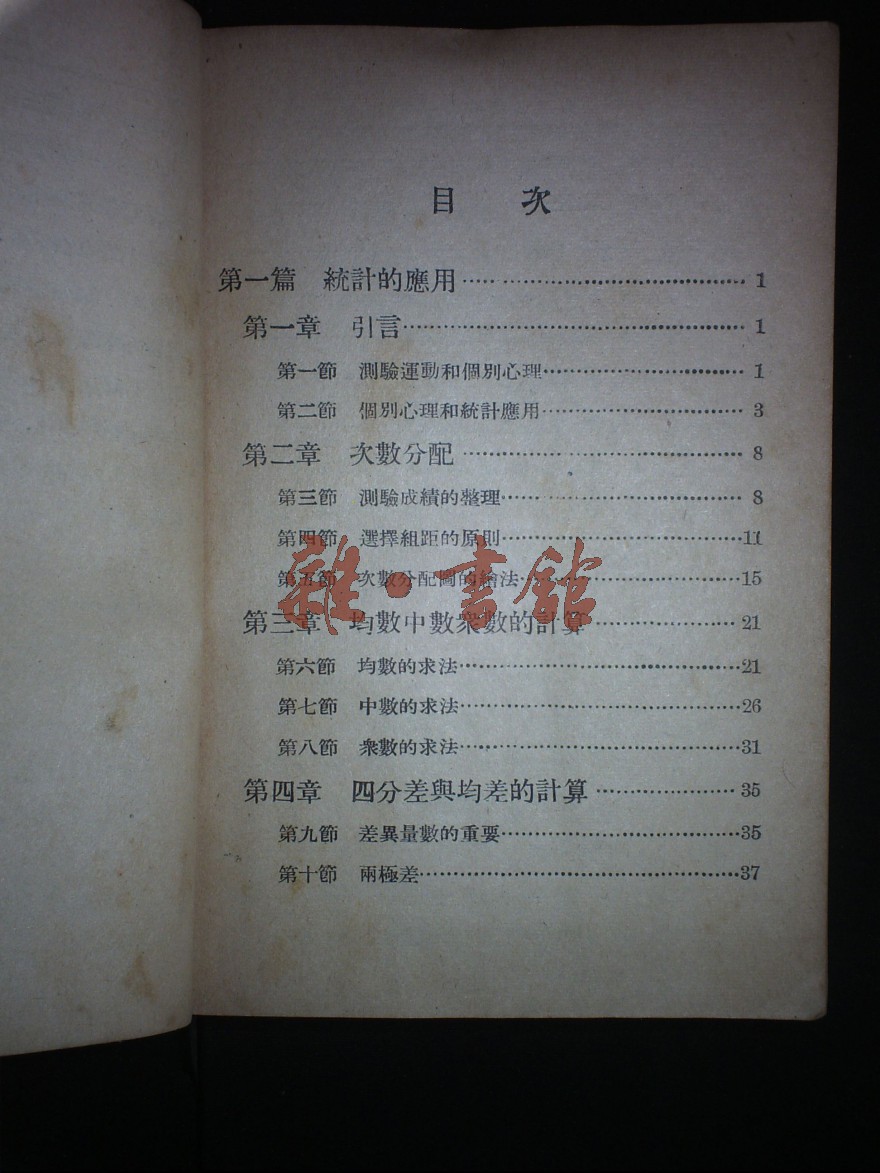 目 次
第一篇 統計的應用 1
第一章 引言 1
第一節 測驗運動和個別心理 1
第二節 個別心理和統計應用 3
第二章 次數分配 8
第三節 測驗成績的整理 8
第四節 選擇組距的原則 11
第五節 次數分配圖的繪法 15
雜·書館
第三章 均數中數衆數的計算 21
第六節 均數的求法 21
第七節 中數的求法 26
第八節 衆數的求法 31
第四章 四分差與均差的計算 35
第九節 差異量數的重要 35
第十節 兩極差 37